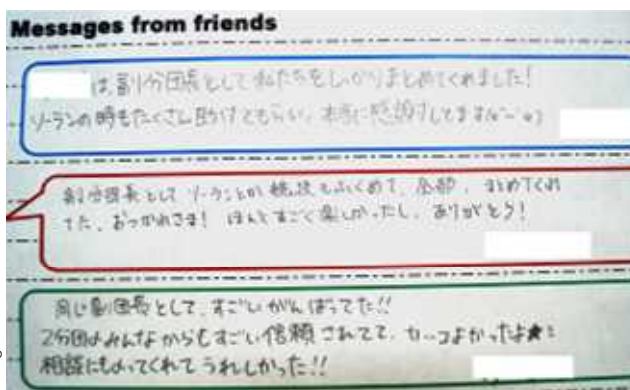 Messages from friends
は、副分団長として私たちをしっかりまとめてくれました!
ソーランの時もたくさん助けてもらい、本当に感謝してます
副分団長として ソーランとか 競技もふくめて、全部、まとめてくれ
てた、おつかれさま! ほんとすごく楽しかったし、ありがとう!
同じ副団長として、すごいがんばってた!!
2分団のみんなからもすごい信頼されてて、カッコよかったよ★
相談にものってくれてうれしかった!!